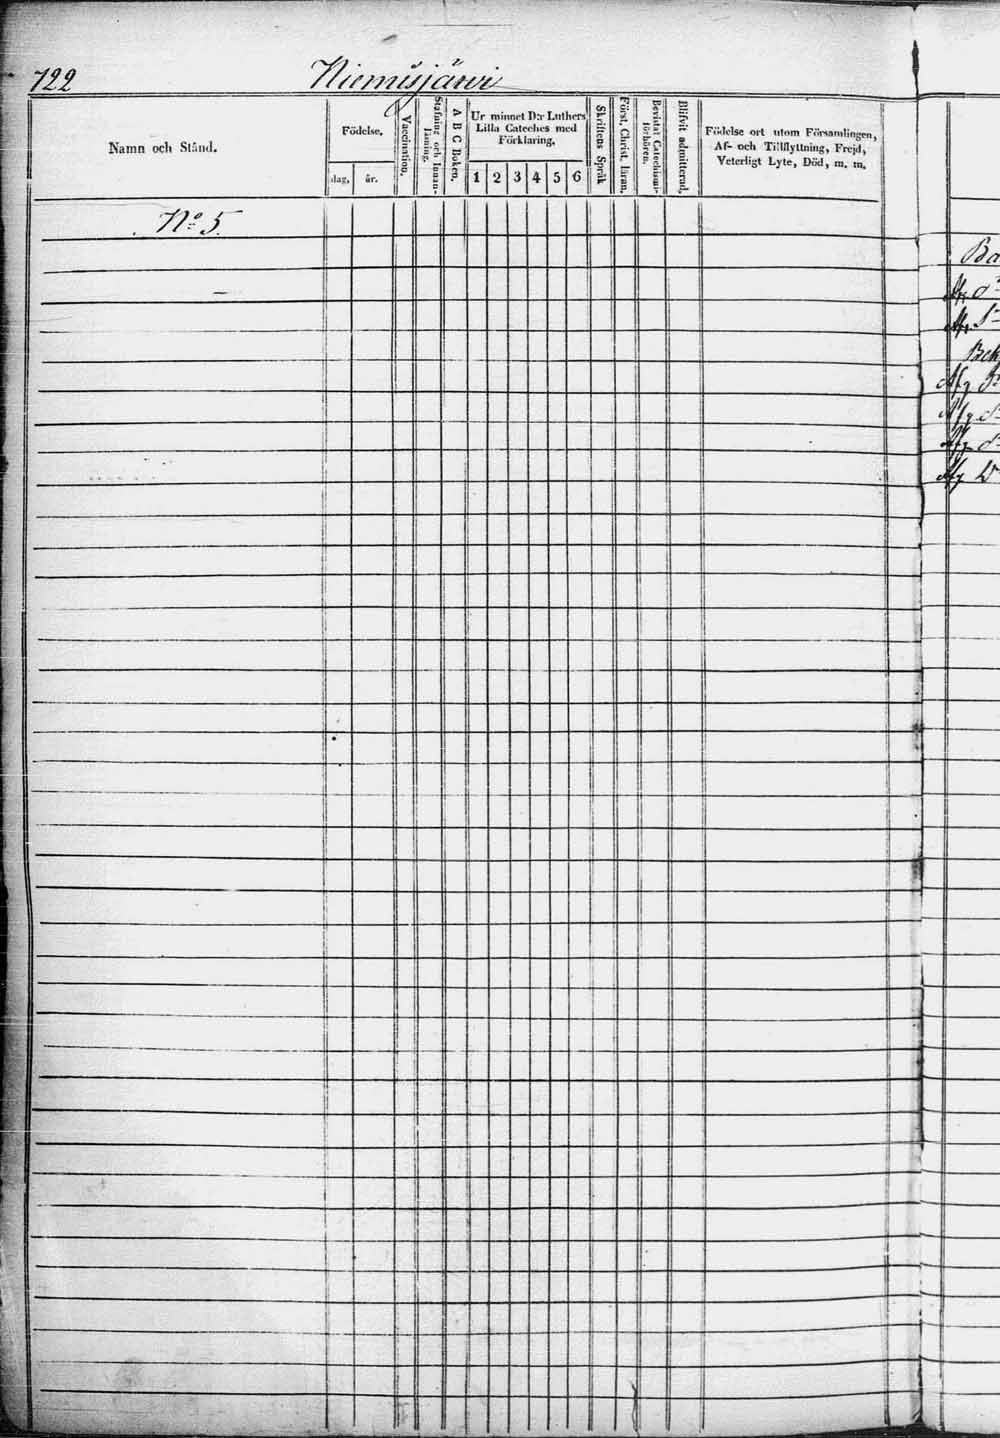 722 Niemisjärvi
Namn och Stånd.
Födelse,
dag,
år.
Vaccination.
Stafning och Innan-
läsning.
A B C Boken.
Ur minnet D:r Luthers
Lilla Cateches med
Förklaring,
1 2 3 4 5 6
Skriftens Språk
Först. Christ. läran.
Bevistat Catechismi-
förhören.
Blifvit admitterad.
Födelse ort utom Församlingen,
Af- och Tillflyttning, Frejd,
Veterligt Lyte, Död, m. m.
No 5.
Ba
Beh
Afg
Afg
Afg
Afg